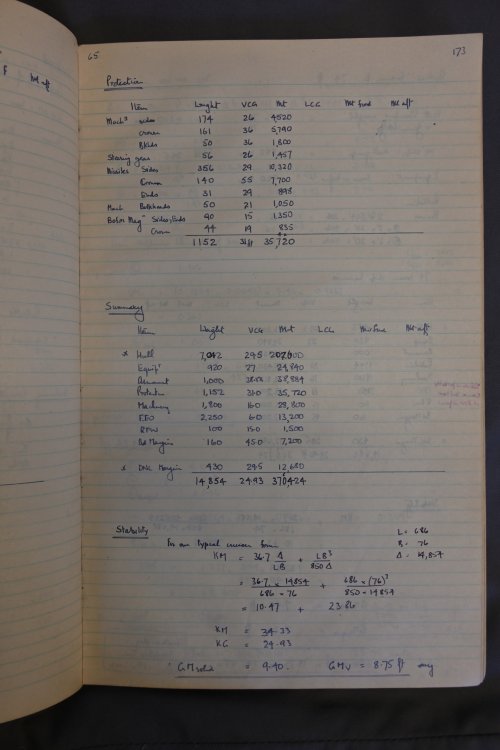 65
173
Protection
Item Weight VCG Mt LCG Mt fwd Mt aft
Mach sides 174 26 4520
crown 161 36 5,790
Bkhds 50 36 1,800
Steering gear 56 26 1,457
Missiles Sides 356 29 10,320
Crown 140 55 7,700
Ends 31 29 898
Bulkheads 50 21 1,050
Bofor Mag Sides, Ends 90 15 1350
Crown 44 19 835
1152 31ft 35,720
Summary
Item Weight VCG Mt LCG Mt fwd Mt aft
x Hull 29.5
Equip 920 27 24,840
Armament 1,000 38,884
Protection 1,152 31.0 35,720
Machinery 1,800 16.0 28,800
2,250 6.0 13,200
RFW 100 15.0 1,500
Bd Margin 160 45.0 7,200
x DNC Margin 430 29.5 12,680
14,854 24.93
Stability
L = 686
B = 76
Δ = 14,854
For our typical cruiser form
KM = 36.7 Δ/LB + LB³/850 Δ
= 36.7 × 14854 / 686 × 76 + 686 × (76)³ / 850 × 14854
= 10.47 + 23.86
KM = 34.33
KG = 24.93
GM solid = 9.40. GM = 8.75 ft